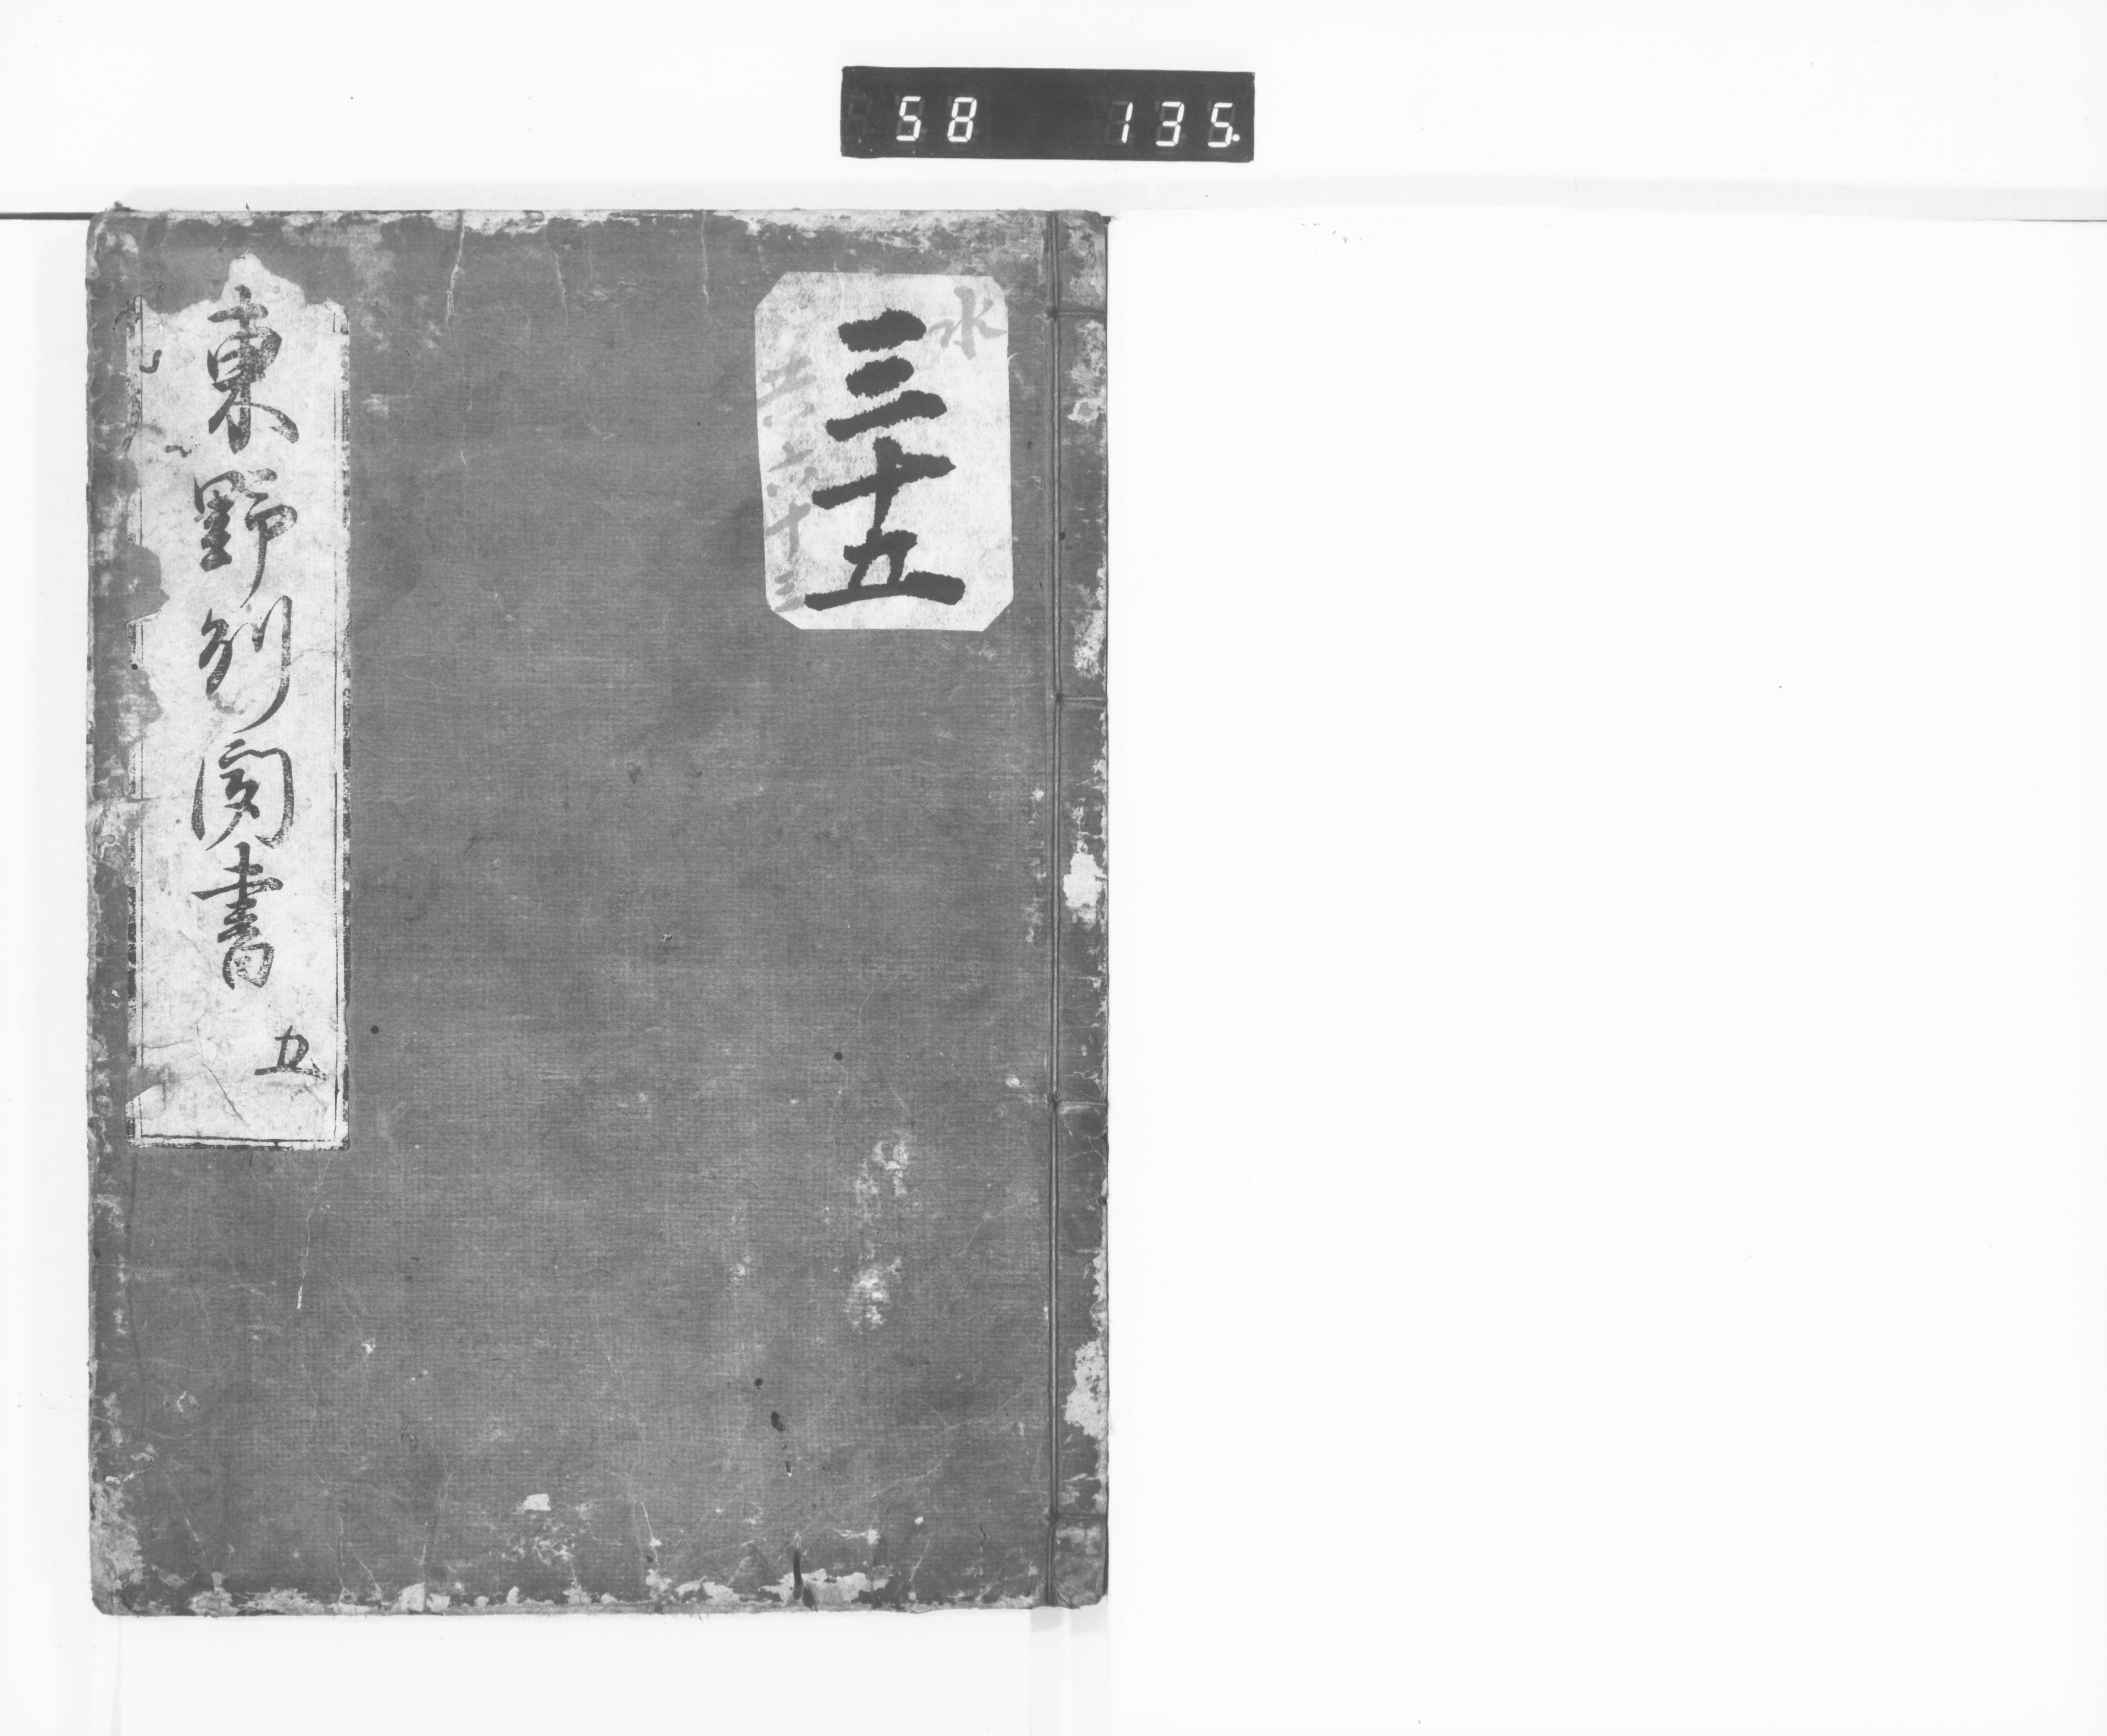 58 135.
水
三十五
六十三
東野州聞書 五